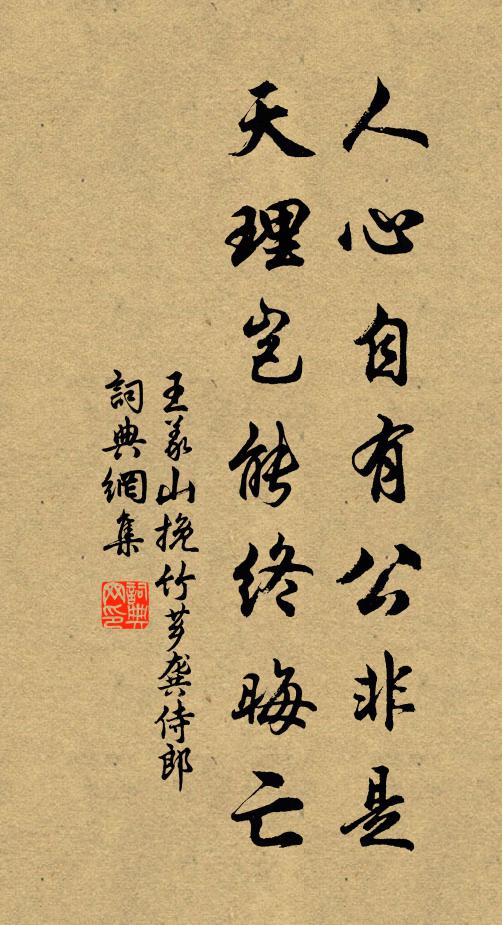 人心自有公非是
天理豈能終晦亡
王義山挽竹芗龔侍郎
詞典網集
詞典网印